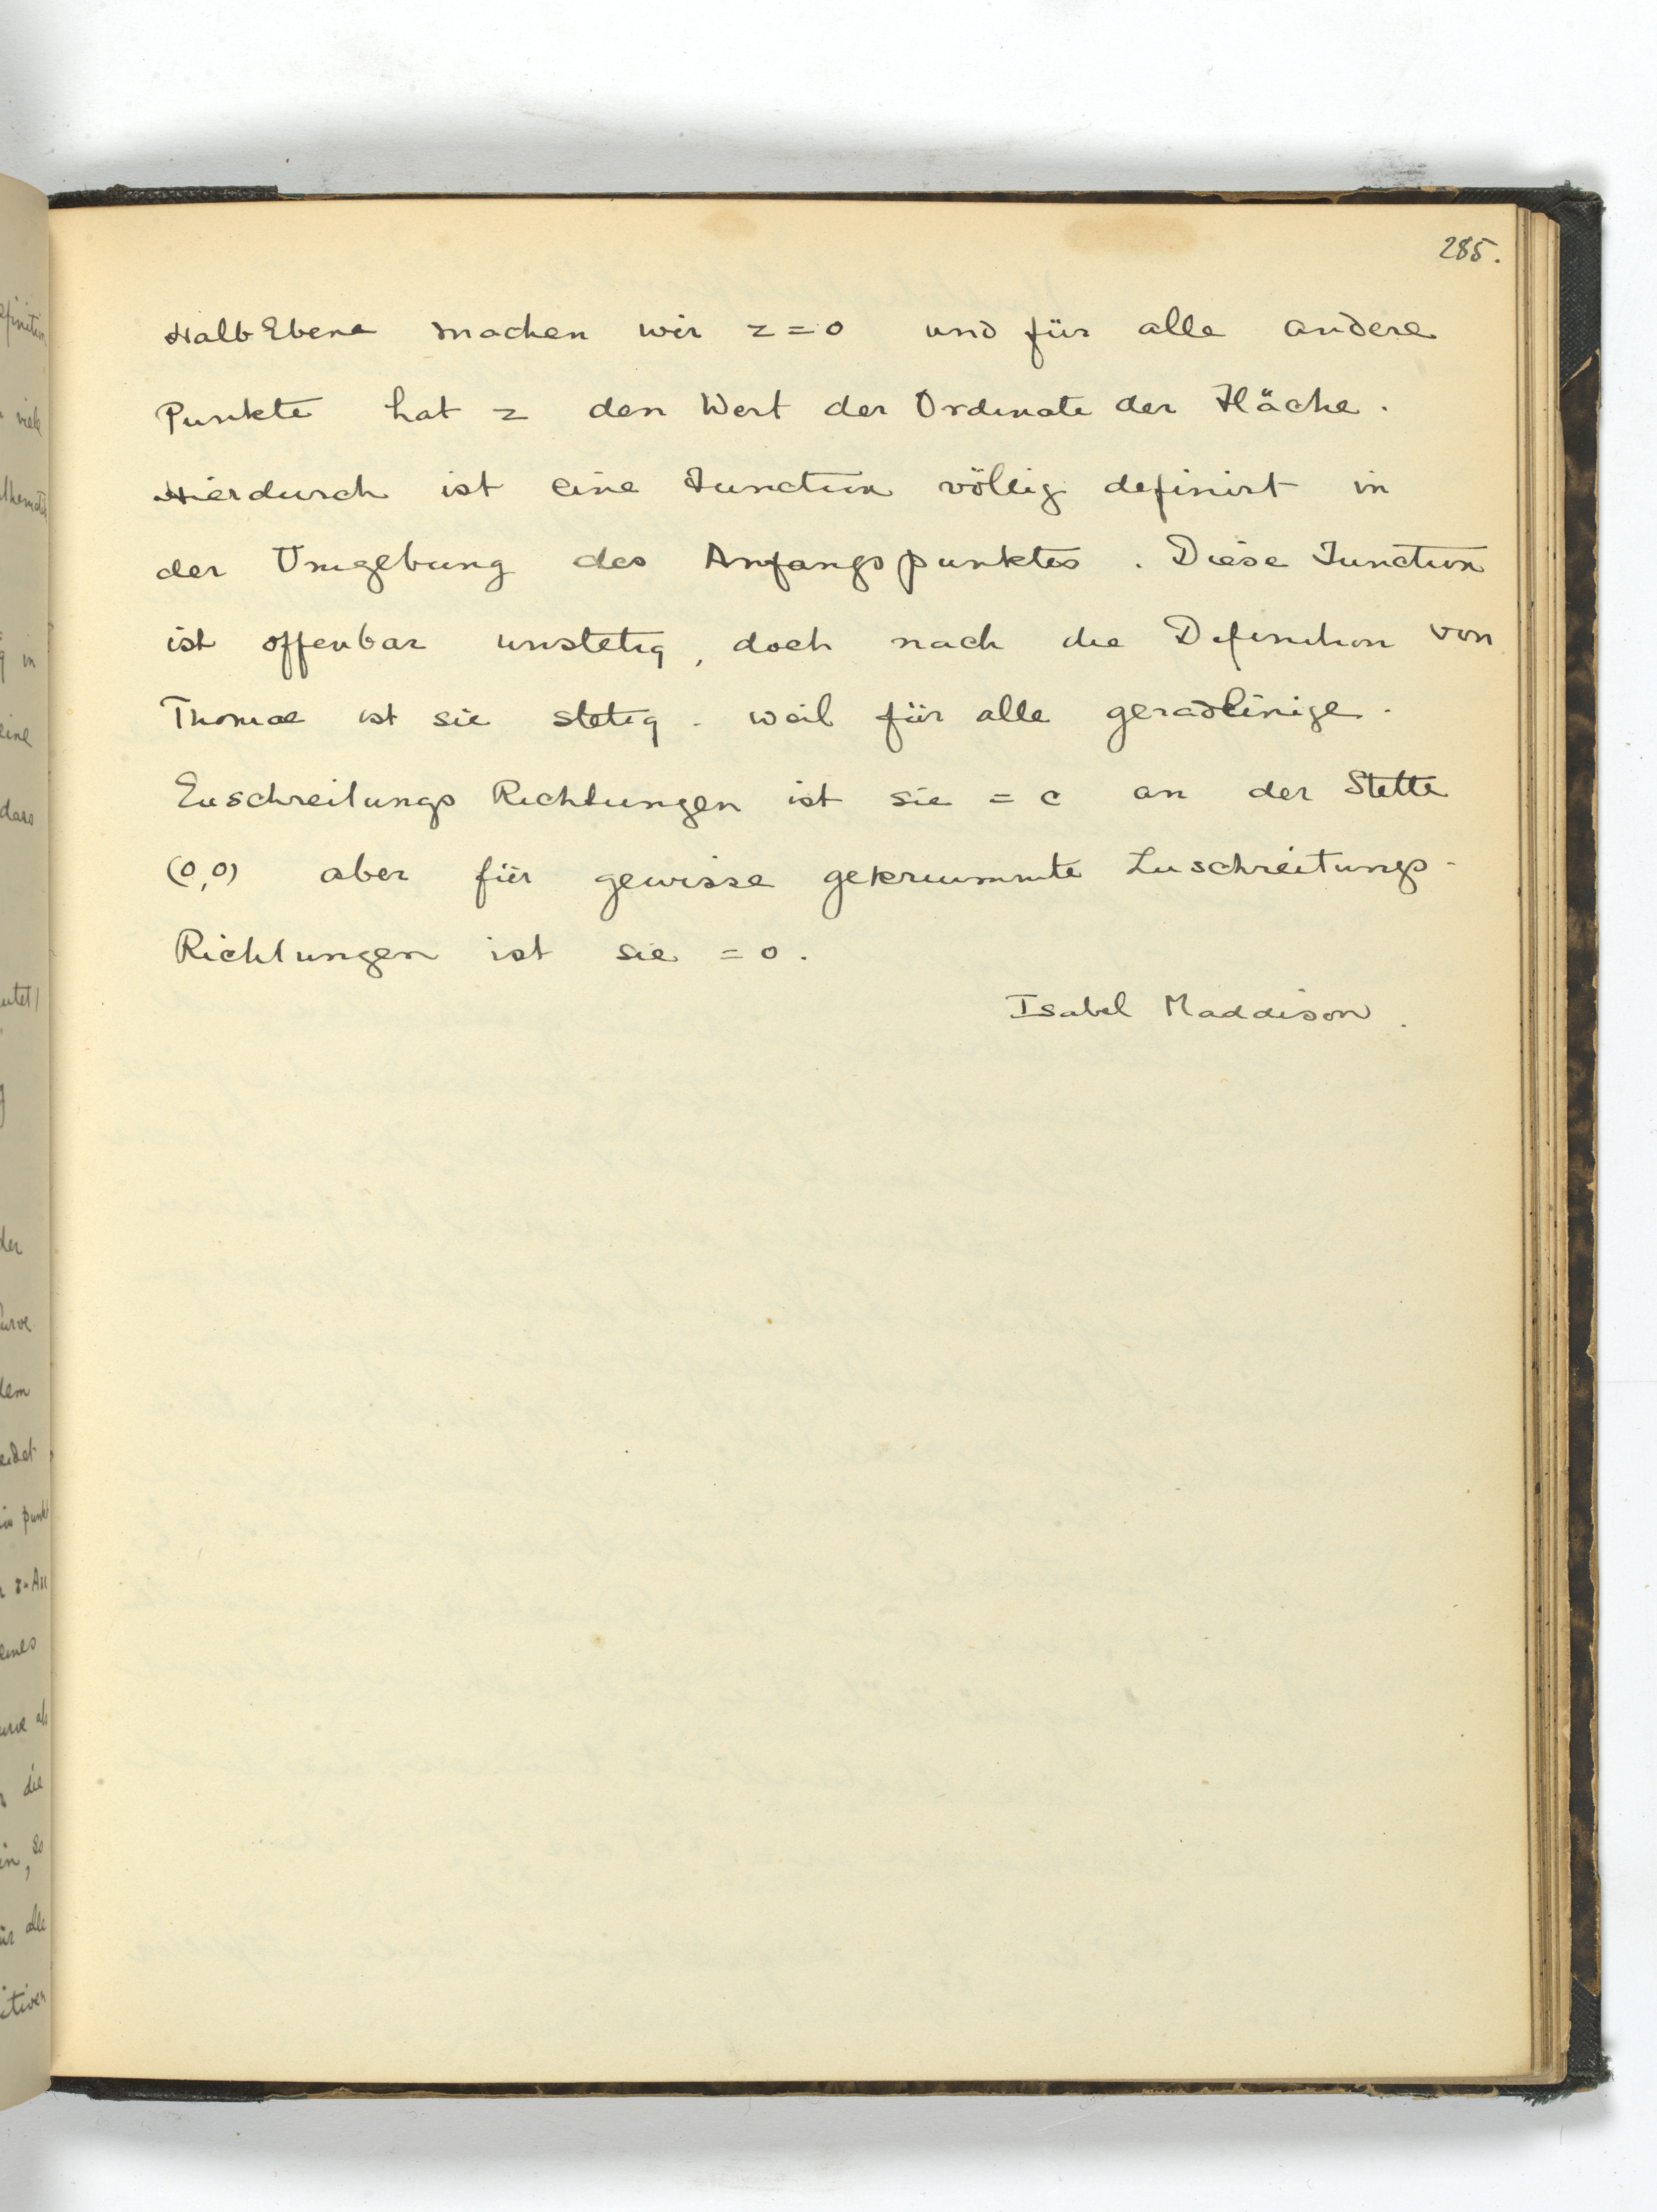 285.
HalbEbene machen wir z=0 und für alle andere
Punkte hat z den Wert der Ordinate der Fläche.
Hierdurch ist eine Function völlig definirt in
der Umgebung des Anfangspunktes. Diese Function
ist offenbar unstetig, doch nach die Definition von
Thomae ist sie stetig. weil für alle geradlinige.
Zuschreitungs Richtungen ist sie = c an der Stelle
(0,0) aber für gewisse gekrummte Zuschreitungs-
Richtungen ist sie = 0.
Isabel Maddison.